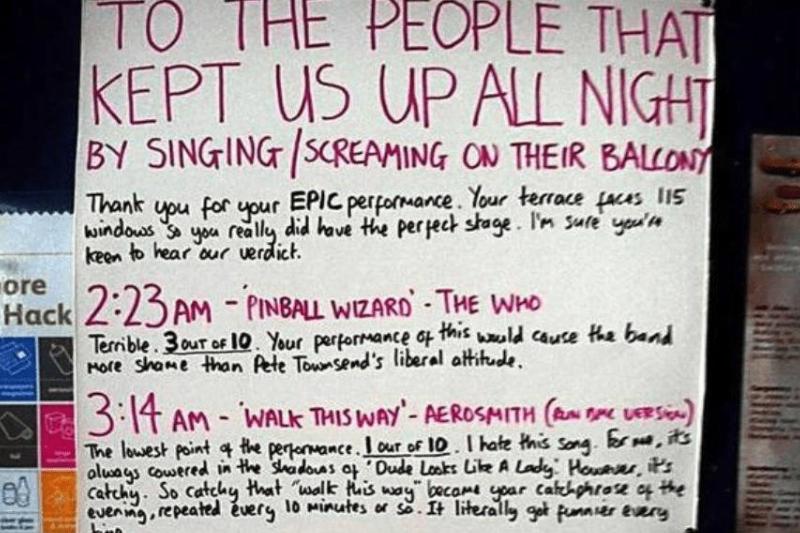 TO THE PEOPLE THAT
KEPT US UP ALL NIGHT
BY SINGING/SCREAMING ON THEIR BALCONY
Thank you for your EPIC performance. Your terrace faces 115
windows so you really did have the perfect stage. I'm sure you're
keen to hear our verdict.
2:23 AM - 'PINBALL WIZARD' - THE WHO
Terrible. 3 OUT OF 10. Your performance of this would cause the band
more shame than Pete Townsend's liberal attitude.
3:14 AM - 'WALK THIS WAY' - AEROSMITH (RUN DMC VERSION)
The lowest point of the performance. 1 OUT OF 10. I hate this song. For me, it's
always cowered in the shadows of 'Dude Looks Like A Lady'. However, it's
catchy. So catchy that "walk this way" became your catchphrase of the
evening, repeated every 10 minutes or so. It literally got funnier every
time
ore
Hack